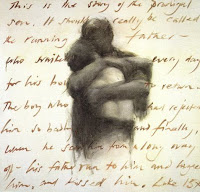 This is the story of the prodigal
son. It should really be called
the running father -
who waited every day
for his boy to return.
The boy who had rejected
him so badly and finally,
when he saw him a long way
off - his father ran to him and
him, and kissed him. Luke 15